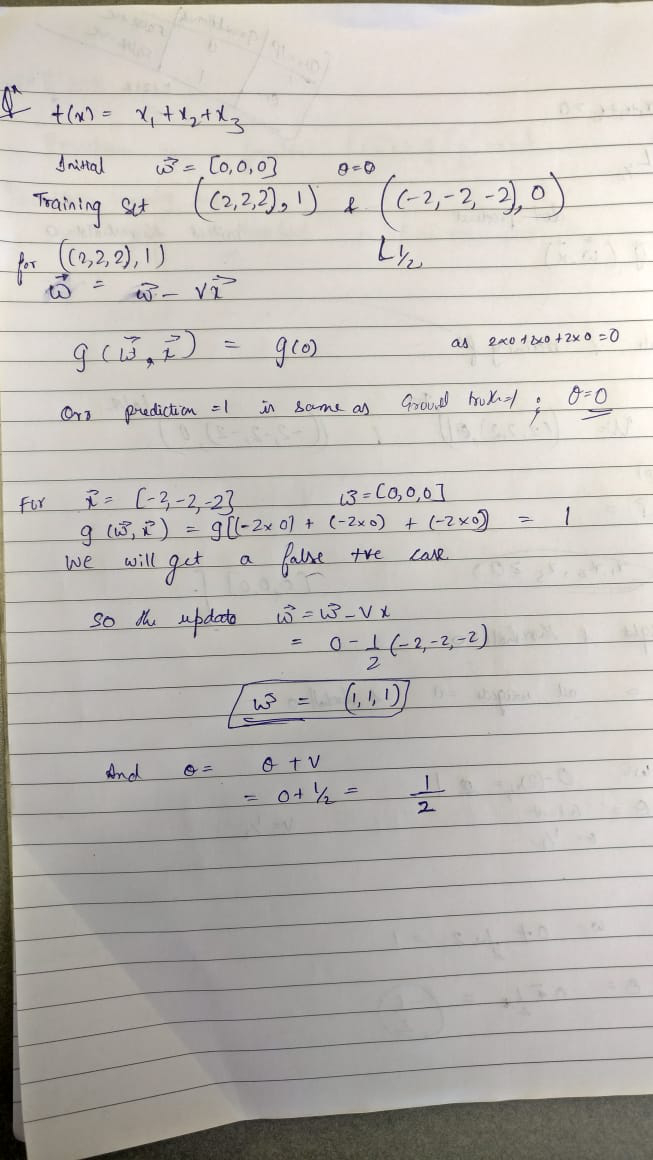 Qn t(x) = x₁ + x₂ + x₃
Initial w⃗ = [0,0,0] θ=0
Training Set ((2,2,2), 1) & ((-2,-2,-2), 0)
for ((2,2,2), 1) L 1/2
w⃗ = w⃗ - νx⃗
g(w⃗, x⃗) = g(0) as 2x0+2x0+2x0=0
prediction =1 is same as Ground ; θ=0
For x⃗ = [-2,-2,-2] w⃗ = [0,0,0]
g(w⃗, x⃗) = g[(-2x0) + (-2x0) + (-2x0)] = 1
We will get a false +ve case
So the update w⃗ = w⃗ - νx
= 0 - 1/2 (-2,-2,-2)
w⃗ = (1,1,1)
And θ = θ + ν
= 0 + 1/2 = 1/2